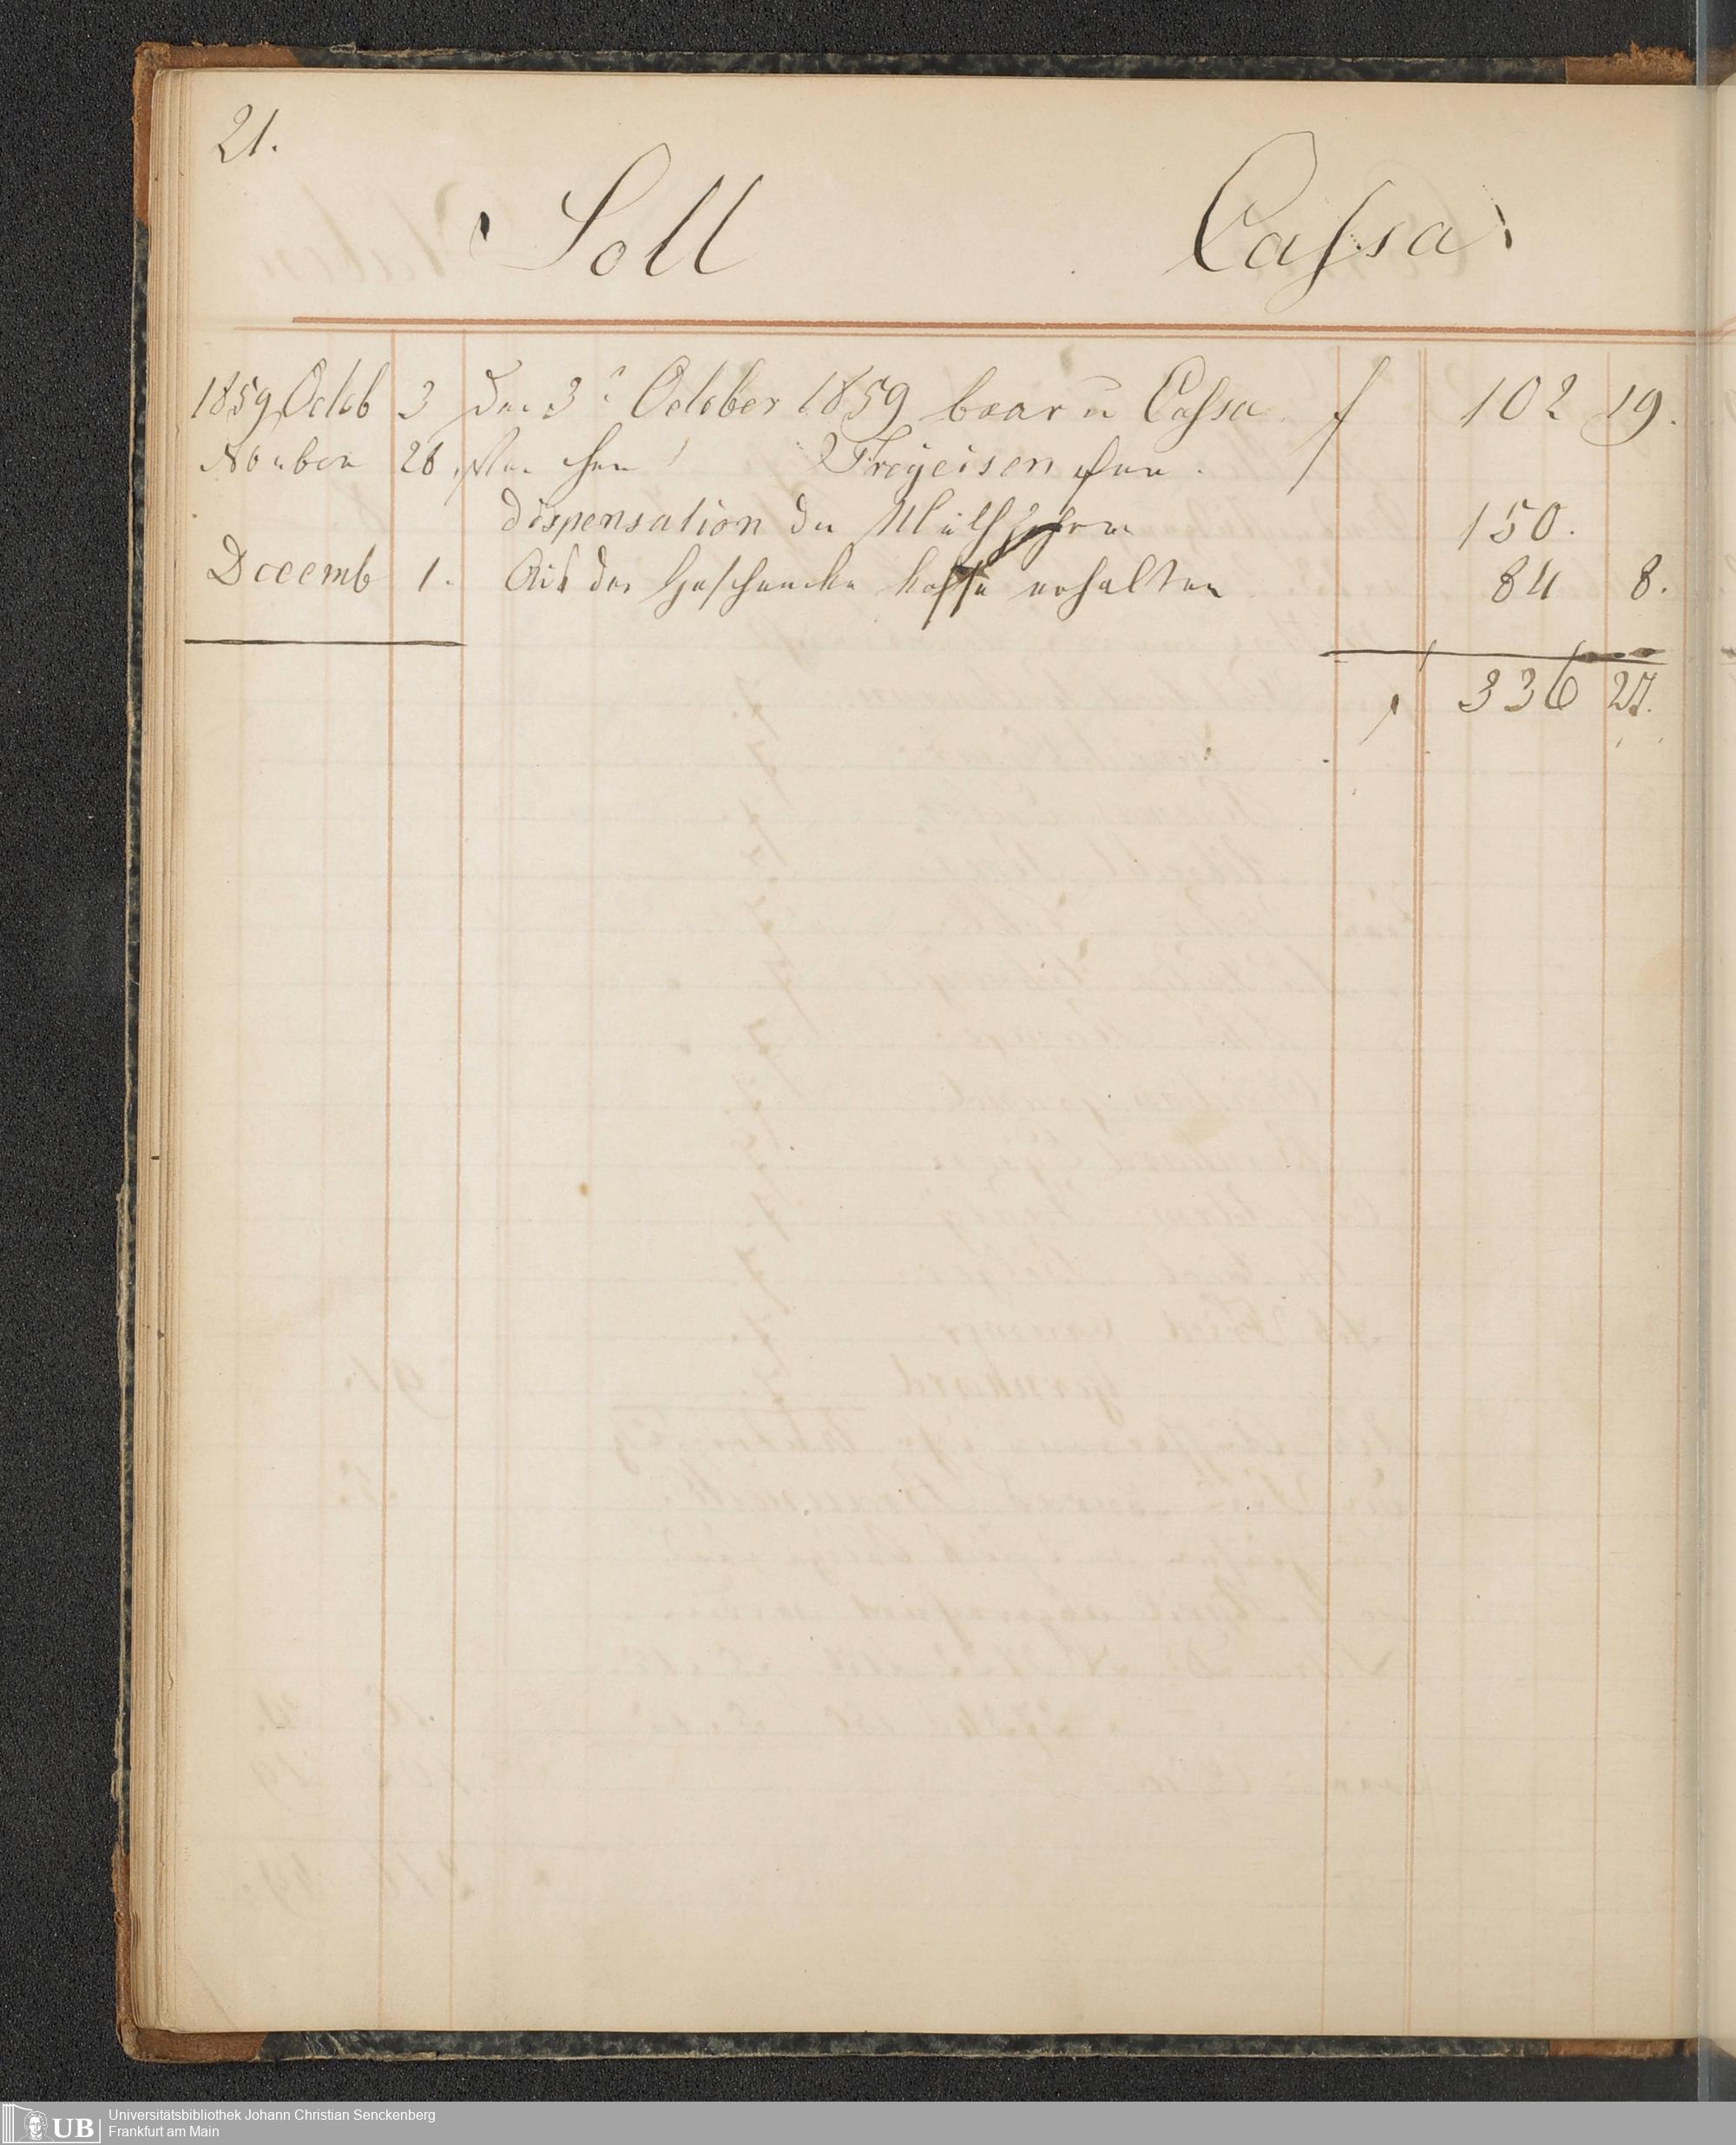 21.
Soll Cassa
1859 Octob 3 Den 3t October 1859 baar in Cassa f 102 19.
November 26 Von Herr Freyeisen für
dispensation der 150.
Decemb 1. Aus der Geschencke Kasse erhalten 84 8.
336 27.
UB Universitätsbibliothek Johann Christian Senckenberg
Frankfurt am Main